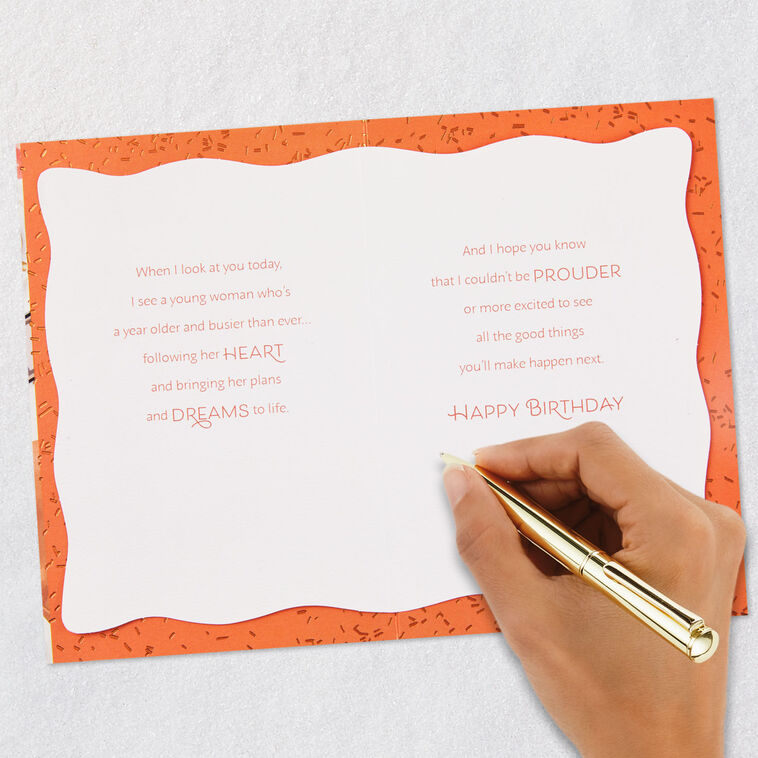 When I look at you today,
I see a young woman who's
a year older and busier than ever...
following her HEART
and bringing her plans
and DREAMS to life.
And I hope you know
that I couldn't be PROUDER
or more excited to see
all the good things
you'll make happen next.
HAPPY BIRTHDAY